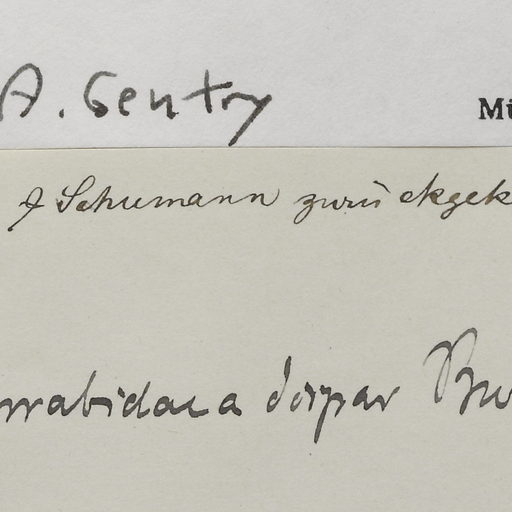 A. Gentry
Mü
J Schumann zurückgek
rrabidaea dispar Bu